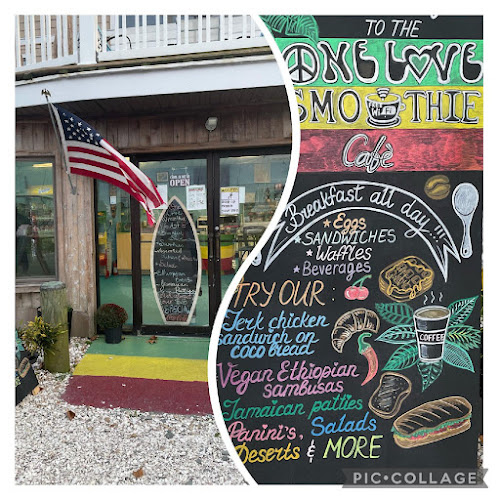 OPEN
TO THE
ONE LOVE
SMOOTHIE
Cafè
Breakfast all day!!!
Eggs
SANDWICHES
Waffles
Beverages
TRY OUR:
Jerk chicken
sandwich on
coco bread
Vegan Ethiopian
sambusas
Jamaican patties
Panini's, Salads
Deserts & MORE
COFFEE
PIC•COLLAGE